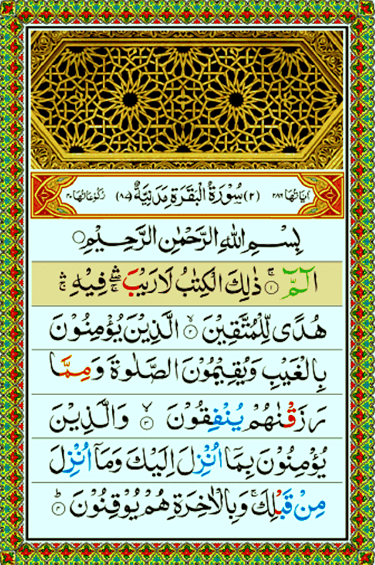 اٰیَاتُهَا ۲۸۶ (۲) سُوْرَةُ الْبَقَرَةِ مَدَنِیَّةٌ (۸۷) رُكُوْعَاتُهَا ۴۰
بِسْمِ اللّٰهِ الرَّحْمٰنِ الرَّحِیْمِ
الٓمّٓ ۚ﴿۱﴾ ذٰلِكَ الْكِتٰبُ لَا رَیْبَ ۛۖ فِیْهِ ۛۚ
هُدًی لِّلْمُتَّقِیْنَ ۙ﴿۲﴾ الَّذِیْنَ یُؤْمِنُوْنَ
بِالْغَیْبِ وَیُقِیْمُوْنَ الصَّلٰوةَ وَمِمَّا
رَزَقْنٰهُمْ یُنْفِقُوْنَ ۙ﴿۳﴾ وَالَّذِیْنَ
یُؤْمِنُوْنَ بِمَاۤ اُنْزِلَ اِلَیْكَ وَمَاۤ اُنْزِلَ
مِنْ قَبْلِكَ ۚ وَبِالْاٰخِرَةِ هُمْ یُوْقِنُوْنَ ؕ﴿۴﴾